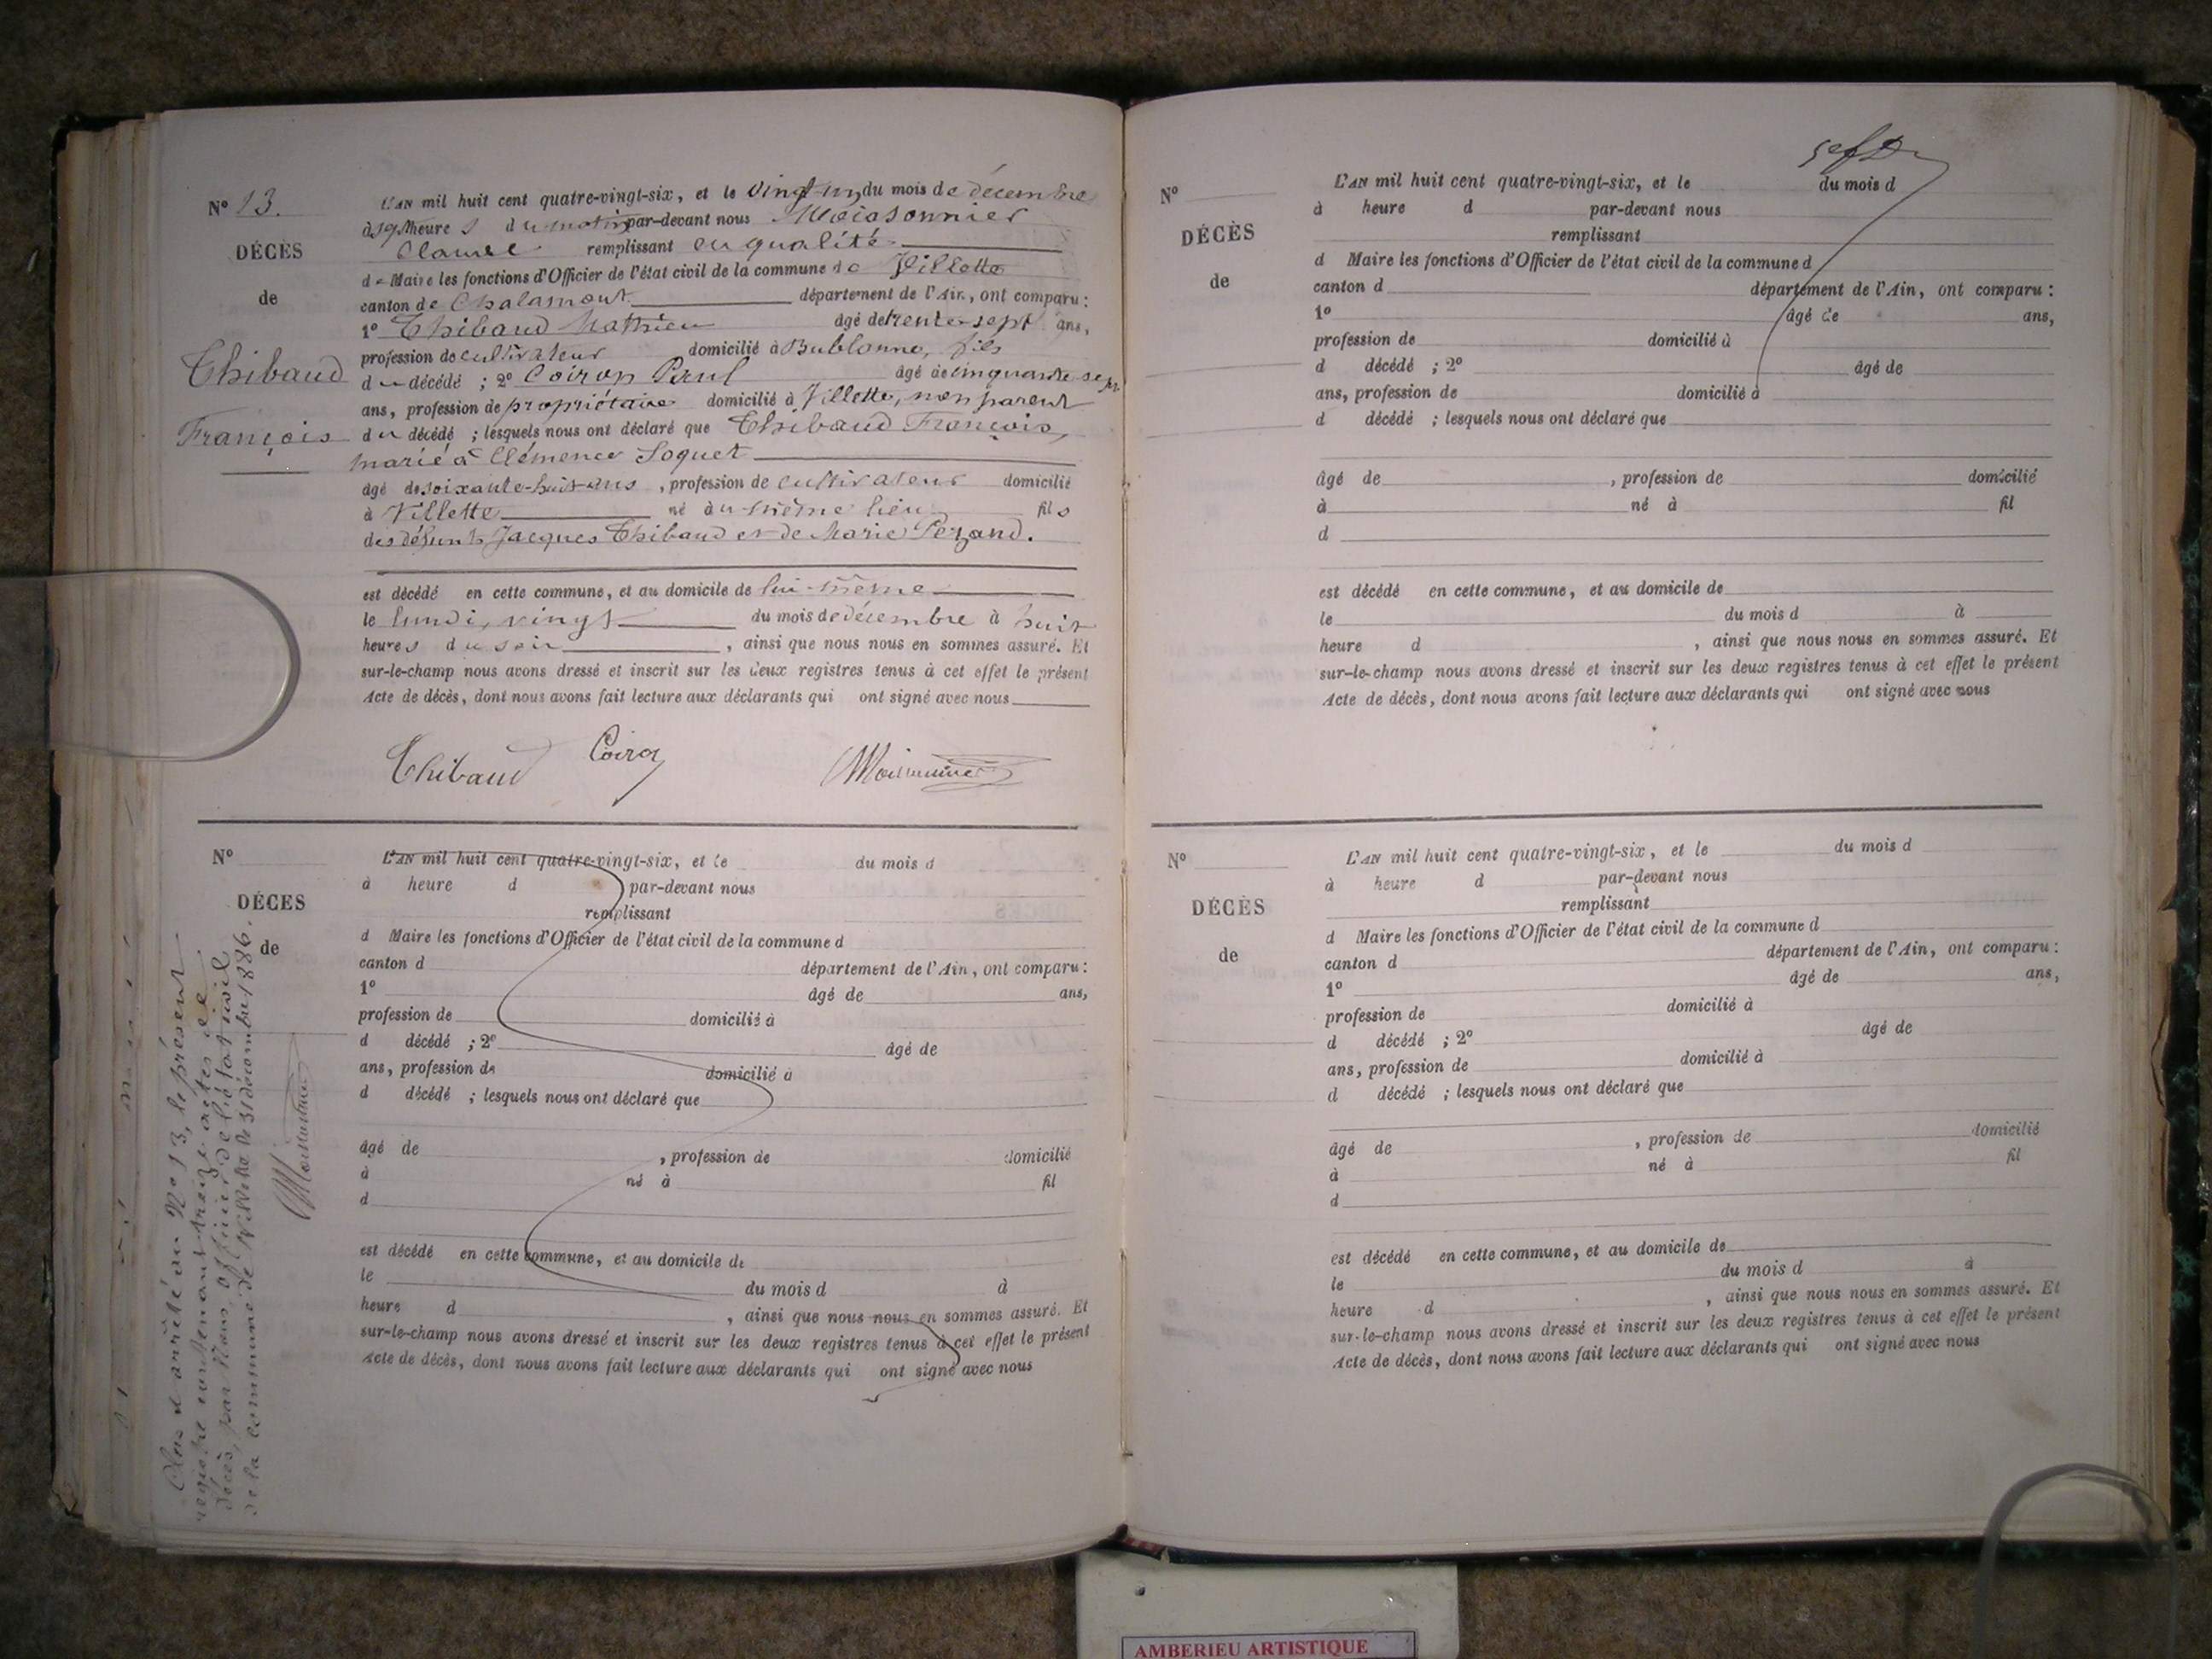 N° 13.
DÉCÈS
de
Thibaud
François
L'AN mil huit cent quatre-vingt-six, et le vingt-un du mois de décembre
à sept heures du matin par-devant nous Moissonnier
Claude remplissant en qualité
de Maire les fonctions d'Officier de l'état civil de la commune de Villette
canton de Chalamont département de l'Ain, ont comparu :
1° Thibaud Mathieu âgé de trente-sept ans,
profession de cultivateur domicilié à Bublanne, fils
du décédé ; 2° Coiron Paul âgé de cinquante-sept
ans, profession de propriétaire domicilié à Villette, non parent
du décédé ; lesquels nous ont déclaré que Thibaud François,
marié à Clémence Soquet
âgé de soixante-huit ans, profession de cultivateur domicilié
à Villette né au même lieu fils
des défunts Jacques Thibaud et de Marie
est décédé en cette commune, et au domicile de lui-même
le lundi, vingt du mois de décembre à huit
heures du soir, ainsi que nous nous en sommes assuré. Et
sur-le-champ nous avons dressé et inscrit sur les deux registres tenus à cet effet le présent
Acte de décès, dont nous avons fait lecture aux déclarants qui ont signé avec nous
Thibaud Coiron Moissonnier
N°
DÉCÈS
de
L'AN mil huit cent quatre-vingt-six, et le du mois d
à heure d par-devant nous
remplissant
d Maire les fonctions d'Officier de l'état civil de la commune d
canton d département de l'Ain, ont comparu :
1° âgé de ans,
profession de domicilié à
d décédé ; 2° âgé de
ans, profession de domicilié à
d décédé ; lesquels nous ont déclaré que
âgé de , profession de domicilié
à né à fil
d
est décédé en cette commune, et au domicile de
le du mois d à
heure d , ainsi que nous nous en sommes assuré. Et
sur-le-champ nous avons dressé et inscrit sur les deux registres tenus à cet effet le présent
Acte de décès, dont nous avons fait lecture aux déclarants qui ont signé avec nous
Clos et arrêté au N° 13, le présent
registre contenant treize actes de
décès, par Nous, officier de l'état civil
de la commune de Villette le 31 décembre 1886.
Moissonnier
N°
DÉCÈS
de
L'AN mil huit cent quatre-vingt-six, et le du mois d
à heure d par-devant nous
remplissant
d Maire les fonctions d'Officier de l'état civil de la commune d
canton d département de l'Ain, ont comparu :
1° âgé de ans,
profession de domicilié à
d décédé ; 2° âgé de
ans, profession de domicilié à
d décédé ; lesquels nous ont déclaré que
âgé de , profession de domicilié
à né à fil
d
est décédé en cette commune, et au domicile de
le du mois d à
heure d , ainsi que nous nous en sommes assuré. Et
sur-le-champ nous avons dressé et inscrit sur les deux registres tenus à cet effet le présent
Acte de décès, dont nous avons fait lecture aux déclarants qui ont signé avec nous
N°
DÉCÈS
de
L'AN mil huit cent quatre-vingt-six, et le du mois d
à heure d par-devant nous
remplissant
d Maire les fonctions d'Officier de l'état civil de la commune d
canton d département de l'Ain, ont comparu :
1° âgé de ans,
profession de domicilié à
d décédé ; 2° âgé de
ans, profession de domicilié à
d décédé ; lesquels nous ont déclaré que
âgé de , profession de domicilié
à né à fil
d
est décédé en cette commune, et au domicile de
le du mois d à
heure d , ainsi que nous nous en sommes assuré. Et
sur-le-champ nous avons dressé et inscrit sur les deux registres tenus à cet effet le présent
Acte de décès, dont nous avons fait lecture aux déclarants qui ont signé avec nous
AMBERIEU ARTISTIQUE